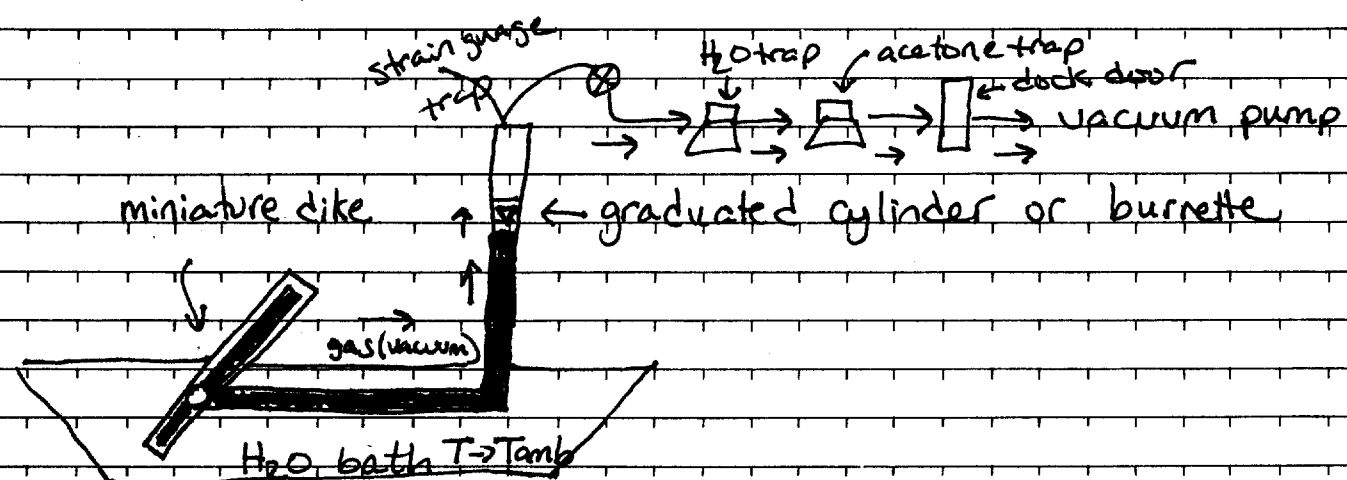 strain guage
trap
H2O trap
acetone trap
dock door
vacuum pump
miniature dike
graduated cylinder or burrette
gas (vacuum)
H2O bath T→Tamb